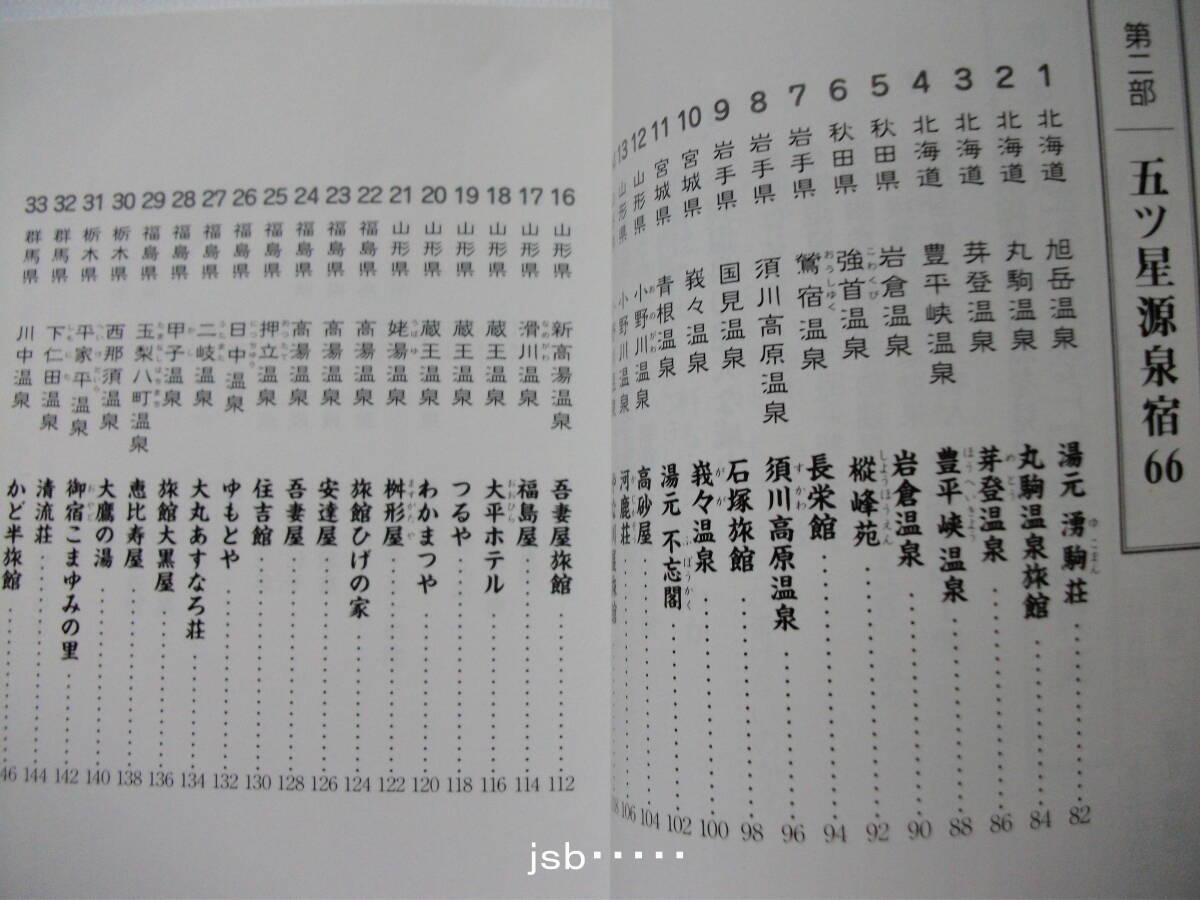 第二部 五ツ星源泉宿66
1 北海道 旭岳温泉 湯元 湧駒荘 ゆこまん 82
2 北海道 丸駒温泉 丸駒温泉旅館 84
3 北海道 芽登温泉 芽登温泉 めとう 86
4 北海道 豊平峡温泉 豊平峡温泉 ほうへいきょう 88
5 秋田県 岩倉温泉 岩倉温泉 90
6 秋田県 強首温泉 こわくび 樅峰苑 しょうほうえん 92
7 岩手県 鶯宿温泉 おうしゅく 長栄館 94
8 岩手県 須川高原温泉 須川高原温泉 すかわ 96
9 岩手県 国見温泉 石塚旅館 98
10 宮城県 峩々温泉 峩々温泉 がが 100
11 宮城県 青根温泉 湯元 不忘閣 ふぼうかく 102
12 山形県 小野川温泉 おのがわ 高砂屋 104
13 山形県 小野川温泉 河鹿荘 106
16 山形県 新高湯温泉 吾妻屋旅館 112
17 山形県 滑川温泉 なめがわ 福島屋 114
18 山形県 蔵王温泉 大平ホテル おおひら 116
19 山形県 蔵王温泉 つるや 118
20 山形県 蔵王温泉 わかまつや 120
21 山形県 姥湯温泉 うばゆ 桝形屋 ますがたや 122
22 福島県 高湯温泉 旅館ひげの家 124
23 福島県 高湯温泉 安達屋 126
24 福島県 高湯温泉 吾妻屋 128
25 福島県 押立温泉 おったて 住吉館 130
26 福島県 日中温泉 にっちゅう ゆもとや 132
27 福島県 二岐温泉 ふたまた 大丸あすなろ荘 134
28 福島県 甲子温泉 かし 旅館大黒屋 136
29 福島県 玉梨八町温泉 たまなしはちまち 恵比寿屋 138
30 栃木県 西那須温泉 大鷹の湯 140
31 栃木県 平家平温泉 へいけだいら 御宿こまゆみの里 おやど 142
32 群馬県 下仁田温泉 しもにた 清流荘 144
33 群馬県 川中温泉 かど半旅館 46
jsb・・・・・